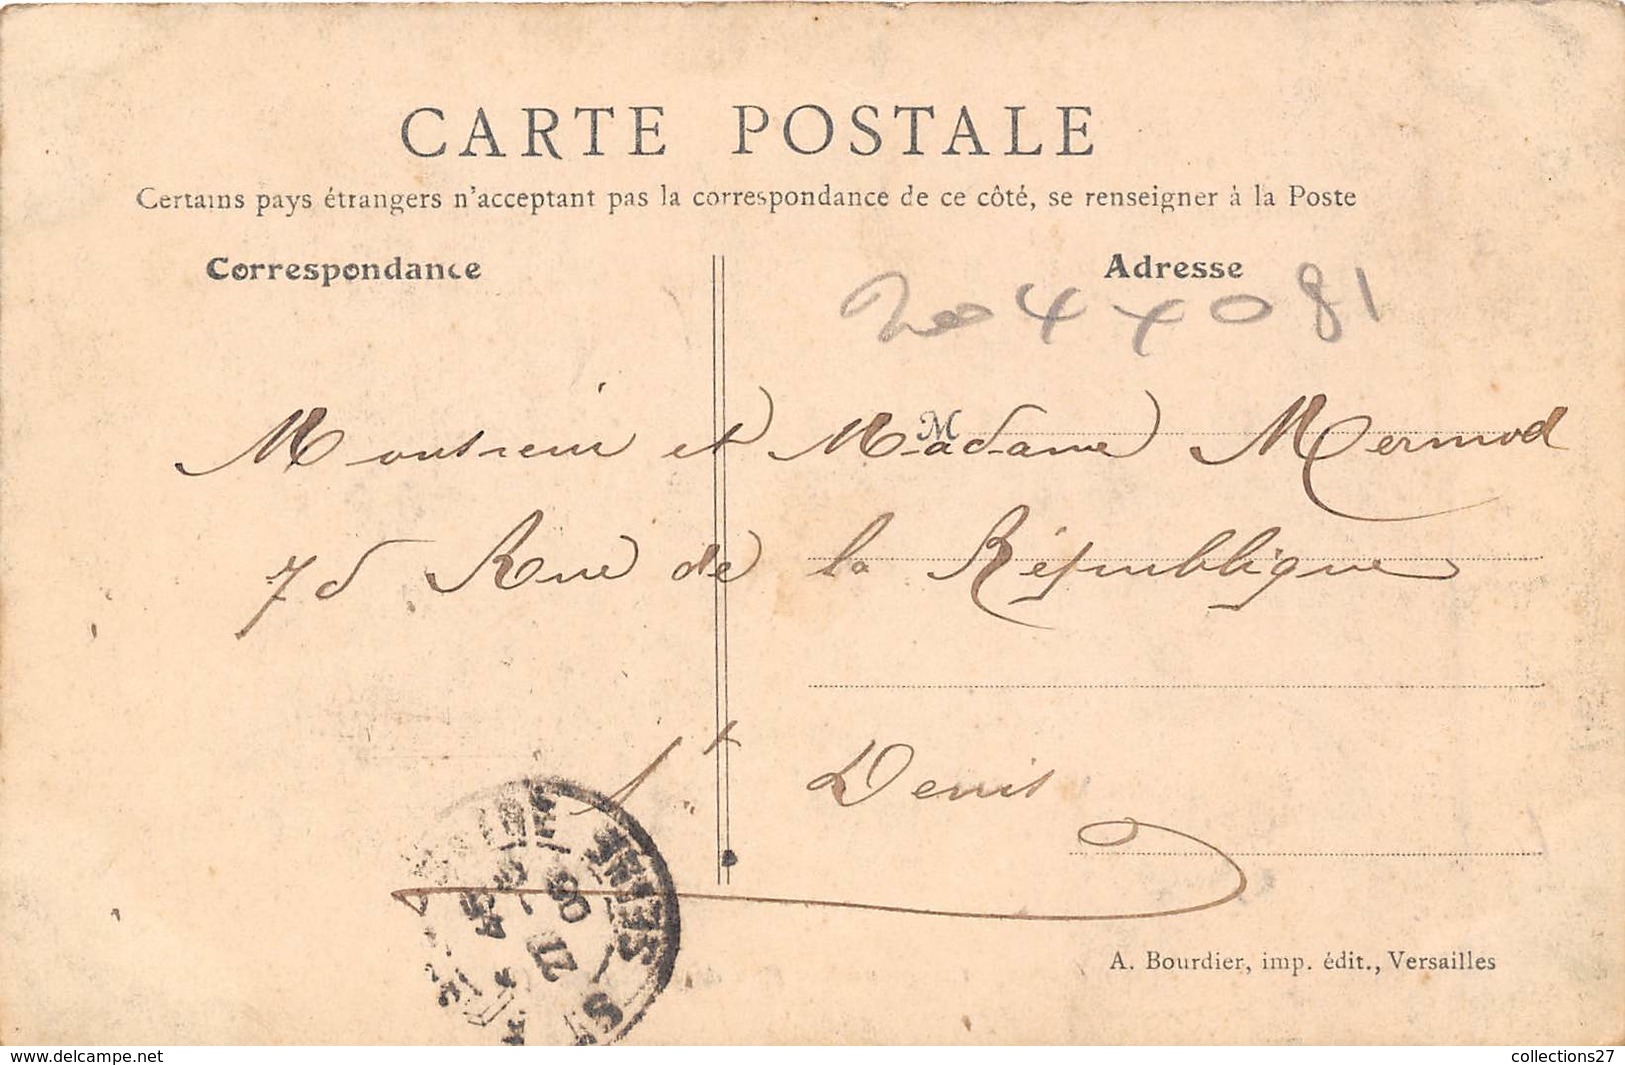 CARTE POSTALE
Certains pays étrangers n'acceptant pas la correspondance de ce côté, se renseigner à la Poste
Correspondance
Adresse
M
Monsieur et Madame Mermod
75 Rue de la République
St Denis
SEINE
A. Bourdier, imp. édit., Versailles
www.delcampe.net
collections27